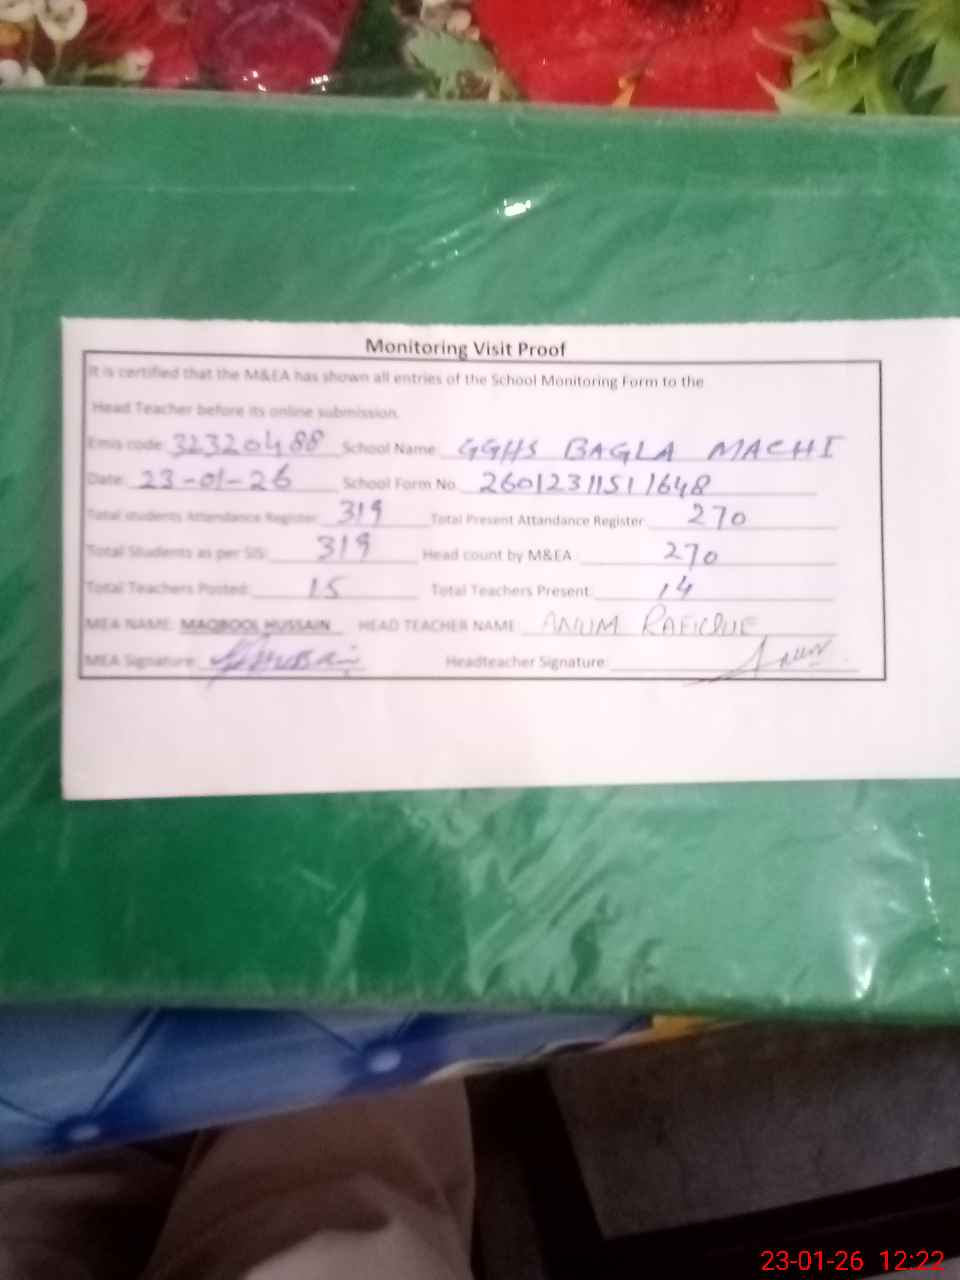 Monitoring Visit Proof
It is certified that the M&EA has shown all entries of the School Monitoring Form to the
Head Teacher before its online submission.
Emis code: 32320488 School Name: GGHS BAGLA MACHI
Date: 23-01-26 School Form No. 26012311511648
Total students Attendance Register: 319 Total Present Attandance Register 270
Total Students as per SIS: 319 Head count by M&EA: 270
Total Teachers Posted: 15 Total Teachers Present: 14
MEA NAME: MAQBOOL HUSSAIN HEAD TEACHER NAME: ANUM RAFIQUE
MEA Signature: Headteacher Signature:
23-01-26 12:22